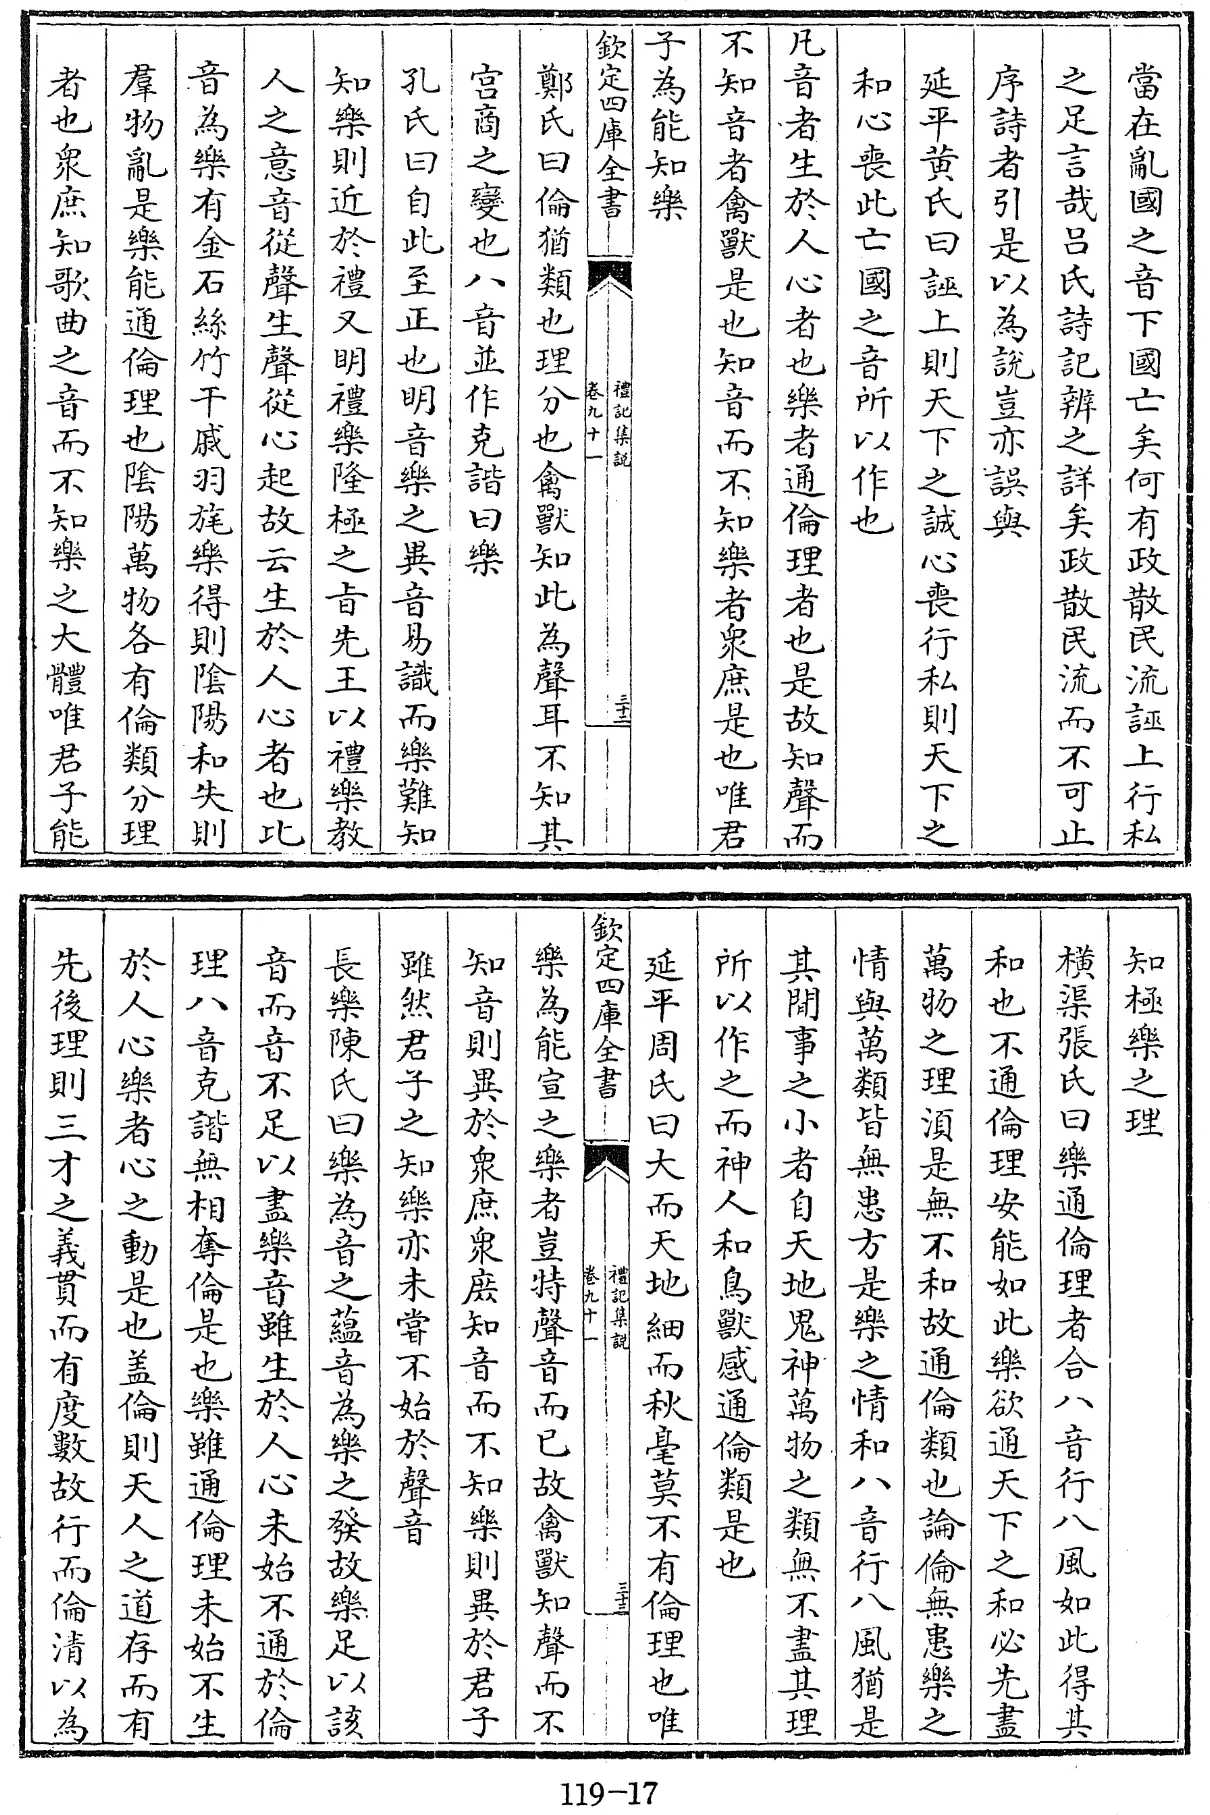 當在亂國之音下國亡矣何有政散民流誣上行私
之足言哉呂氏詩記辨之詳矣政散民流而不可止
序詩者引是以為說豈亦誤與
延平黄氏曰誣上則天下之誠心喪行私則天下之
和心喪此亡國之音所以作也
凡音者生於人心者也樂者通倫理者也是故知聲而
不知音者禽獸是也知音而不知樂者衆庶是也唯君
子為能知樂
欽定四庫全書
禮記集説
卷九十一
三十二
鄭氏曰倫猶類也理分也禽獸知此為聲耳不知其
宫商之變也八音並作克諧曰樂
孔氏曰自此至正也明音樂之異音易識而樂難知
知樂則近於禮又明禮樂隆極之旨先王以禮樂教
人之意音從聲生聲從心起故云生於人心者也比
音為樂有金石絲竹干戚羽旄樂得則陰陽和失則
羣物亂是樂能通倫理也陰陽萬物各有倫類分理
者也衆庶知歌曲之音而不知樂之大體唯君子能
知極樂之理
横渠張氏曰樂通倫理者合八音行八風如此得其
和也不通倫理安能如此樂欲通天下之和必先盡
萬物之理須是無不和故通倫類也論倫無患樂之
情與萬類皆無患方是樂之情和八音行八風猶是
其間事之小者自天地鬼神萬物之類無不盡其理
所以作之而神人和鳥獸感通倫類是也
延平周氏曰大而天地細而秋毫莫不有倫理也唯
欽定四庫全書
禮記集説
卷九十一
三十三
樂為能宣之樂者豈特聲音而已故禽獸知聲而不
知音則異於衆庶衆庶知音而不知樂則異於君子
雖然君子之知樂亦未嘗不始於聲音
長樂陳氏曰樂為音之蘊音為樂之發故樂足以該
音而音不足以盡樂音雖生於人心未始不通於倫
理八音克諧無相奪倫是也樂雖通倫理未始不生
於人心樂者心之動是也盖倫則天人之道存而有
先後理則三才之義貫而有度數故行而倫清以為
119-17